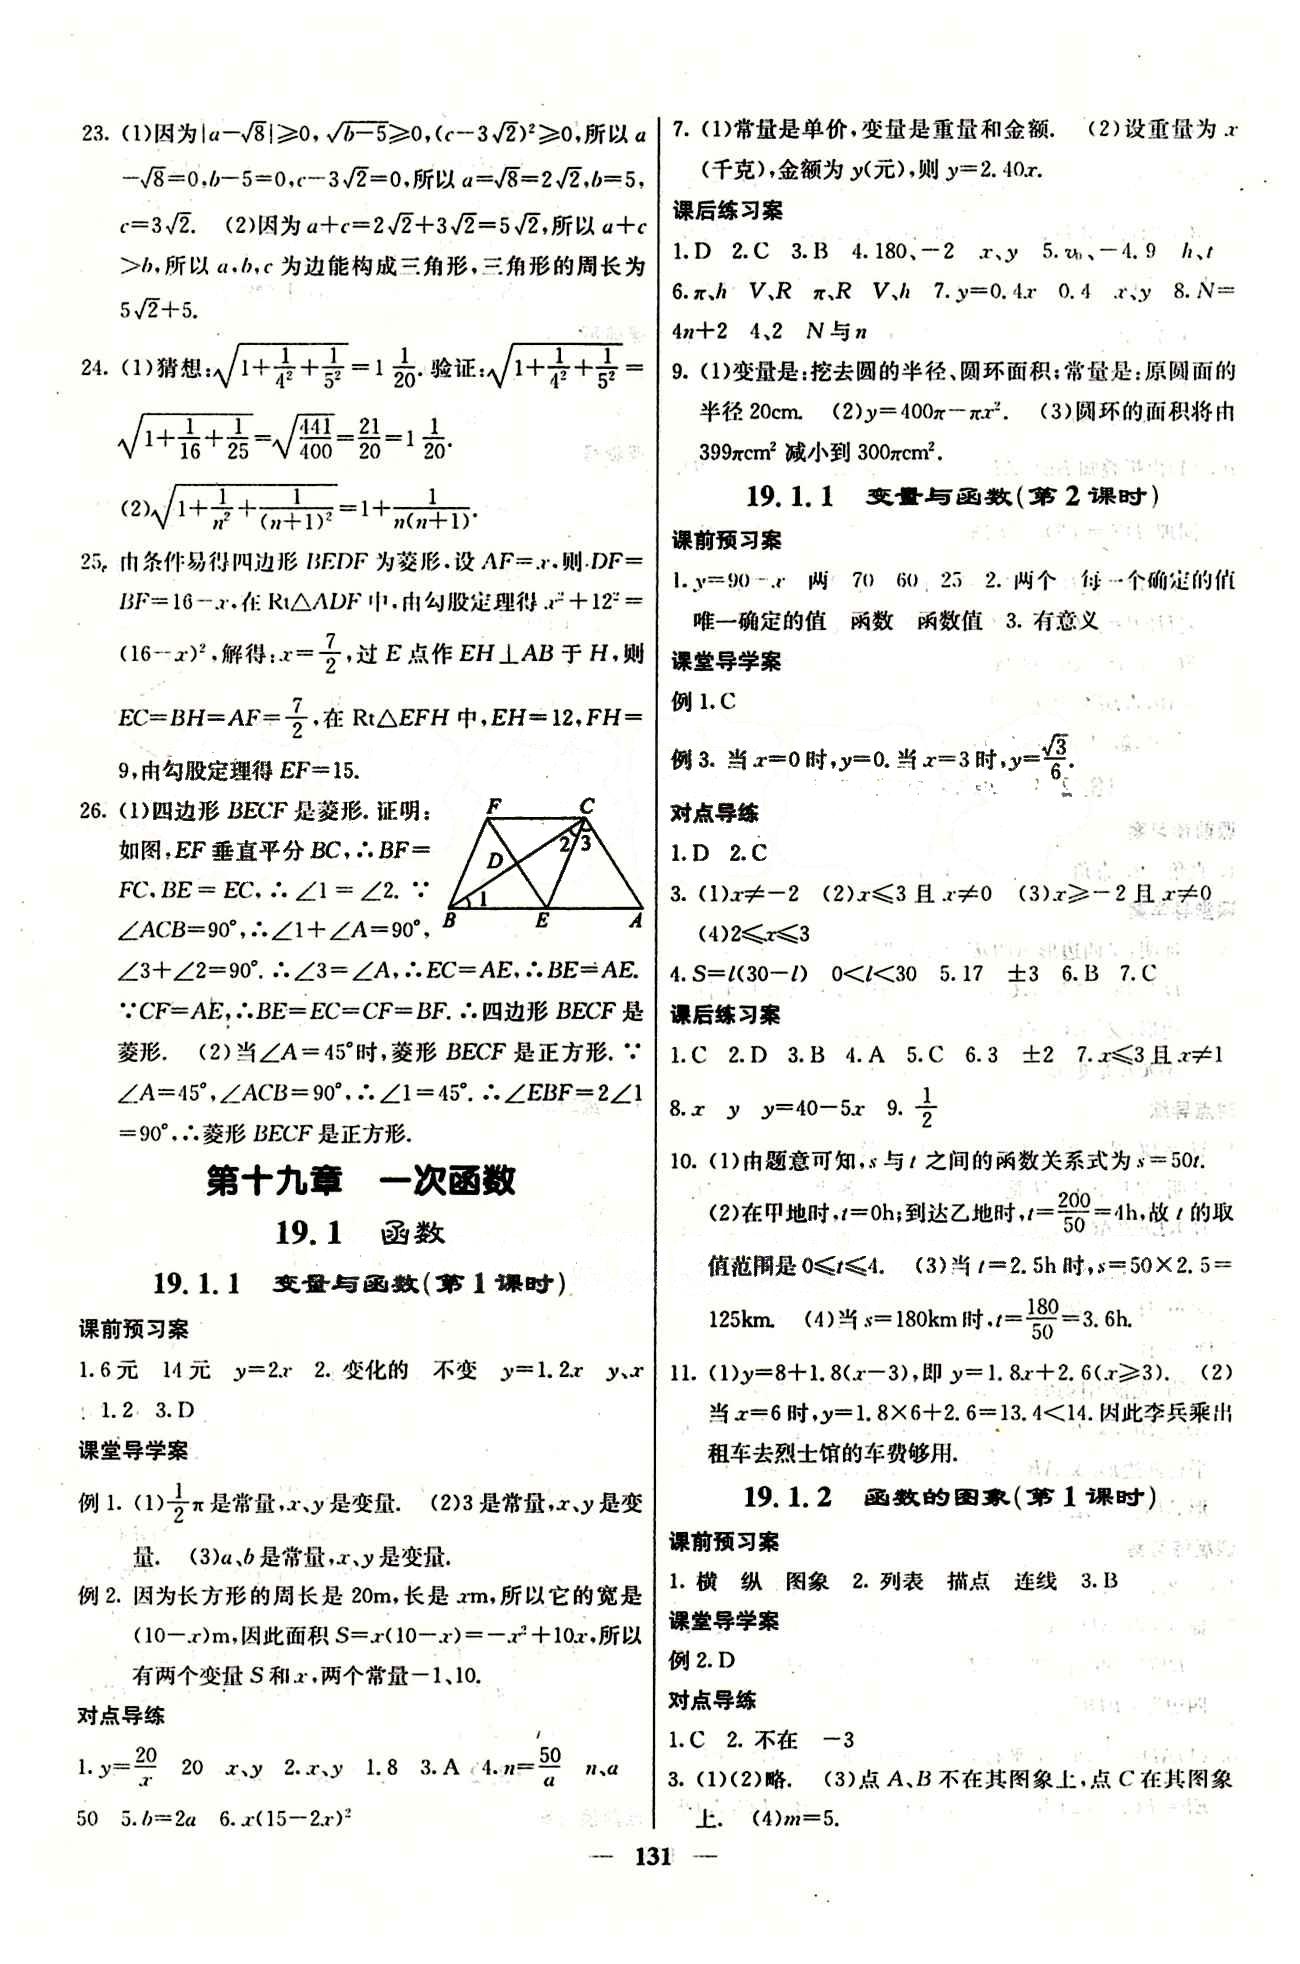 23. (1)因为|a-√8|≥0,√(b-5)≥0,(c-3√2)²≥0,所以a
-√8=0,b-5=0,c-3√2=0,所以a=√8=2√2,b=5,
c=3√2. (2)因为a+c=2√2+3√2=5√2,所以a+c
>b,所以a,b,c为边能构成三角形,三角形的周长为
5√2+5.
24. (1)猜想:√(1+1/4²+1/5²)=1 1/20. 验证:√(1+1/4²+1/5²)=
√(1+1/16+1/25)=√(441/400)=21/20=1 1/20.
(2)√(1+1/n²+1/(n+1)²)=1+1/n(n+1).
25. 由条件易得四边形BEDF为菱形.设AF=x,则DF=
BF=16-x,在Rt△ADF中,由勾股定理得x²+12²=
(16-x)²,解得:x=7/2,过E点作EH⊥AB于H,则
EC=BH=AF=7/2,在Rt△EFH中,EH=12,FH=
9,由勾股定理得EF=15.
26. (1)四边形BECF是菱形.证明:
如图,EF垂直平分BC,∴BF=
FC,BE=EC,∴∠1=∠2. ∵
∠ACB=90°,∴∠1+∠A=90°,
F C
2 3
D
1
B E A
∠3+∠2=90°.∴∠3=∠A,∴EC=AE,∴BE=AE.
∵CF=AE,∴BE=EC=CF=BF.∴四边形BECF是
菱形. (2)当∠A=45°时,菱形BECF是正方形.∵
∠A=45°,∠ACB=90°,∴∠1=45°.∴∠EBF=2∠1
=90°,∴菱形BECF是正方形.
第十九章 一次函数
19.1 函数
19.1.1 变量与函数(第1课时)
课前预习案
1.6元 14元 y=2x 2. 变化的 不变 y=1.2x y、x
1.2 3.D
课堂导学案
例1. (1)1/2π是常量,x、y是变量. (2)3是常量,x、y是变
量. (3)a、b是常量,x、y是变量.
例2. 因为长方形的周长是20m,长是xm,所以它的宽是
(10-x)m,因此面积S=x(10-x)=-x²+10x,所以
有两个变量S和x,两个常量-1、10.
对点导练
1. y=20/x 20 x、y 2. x、y 1.8 3. A 4. n=50/a n、a
50 5. b=2a 6. x(15-2x)²
7. (1)常量是单价,变量是重量和金额. (2)设重量为x
(千克),金额为y(元),则y=2.40x.
课后练习案
1.D 2.C 3.B 4.180、-2 x、y 5. v₀、-4.9 h、t
6. π、h V、R π、R V、h 7. y=0.4x 0.4 x、y 8. N=
4n+2 4、2 N与n
9. (1)变量是:挖去圆的半径、圆环面积;常量是:原圆面的
半径20cm. (2)y=400π-πx². (3)圆环的面积将由
399πcm²减小到300πcm².
19.1.1 变量与函数(第2课时)
课前预习案
1. y=90-x 两 70 60 25 2. 两个 每一个确定的值
唯一确定的值 函数 函数值 3. 有意义
课堂导学案
例1. C
例3. 当x=0时,y=0.当x=3时,y=√3/6.
对点导练
1. D 2. C
3. (1)x≠-2 (2)x≤3且x≠0 (3)x≥-2且x≠0
(4)2≤x≤3
4. S=l(30-l) 0<l<30 5. 17 ±3 6. B 7. C
课后练习案
1. C 2. D 3. B 4. A 5. C 6. 3 ±2 7. x≤3且x≠1
8. x y y=40-5x 9. 1/2
10. (1)由题意可知,s与t之间的函数关系式为s=50t.
(2)在甲地时,t=0h;到达乙地时,t=200/50=4h,故t的取
值范围是0≤t≤4. (3)当t=2.5h时,s=50×2.5=
125km. (4)当s=180km时,t=180/50=3.6h.
11. (1)y=8+1.8(x-3),即y=1.8x+2.6(x≥3). (2)
当x=6时,y=1.8×6+2.6=13.4<14.因此李兵乘出
租车去烈士馆的车费够用.
19.1.2 函数的图象(第1课时)
课前预习案
1. 横 纵 图象 2. 列表 描点 连线 3. B
课堂导学案
例2. D
对点导练
1. C 2. 不在 -3
3. (1)(2)略. (3)点A、B不在其图象上,点C在其图象
上. (4)m=5.
— 131 —